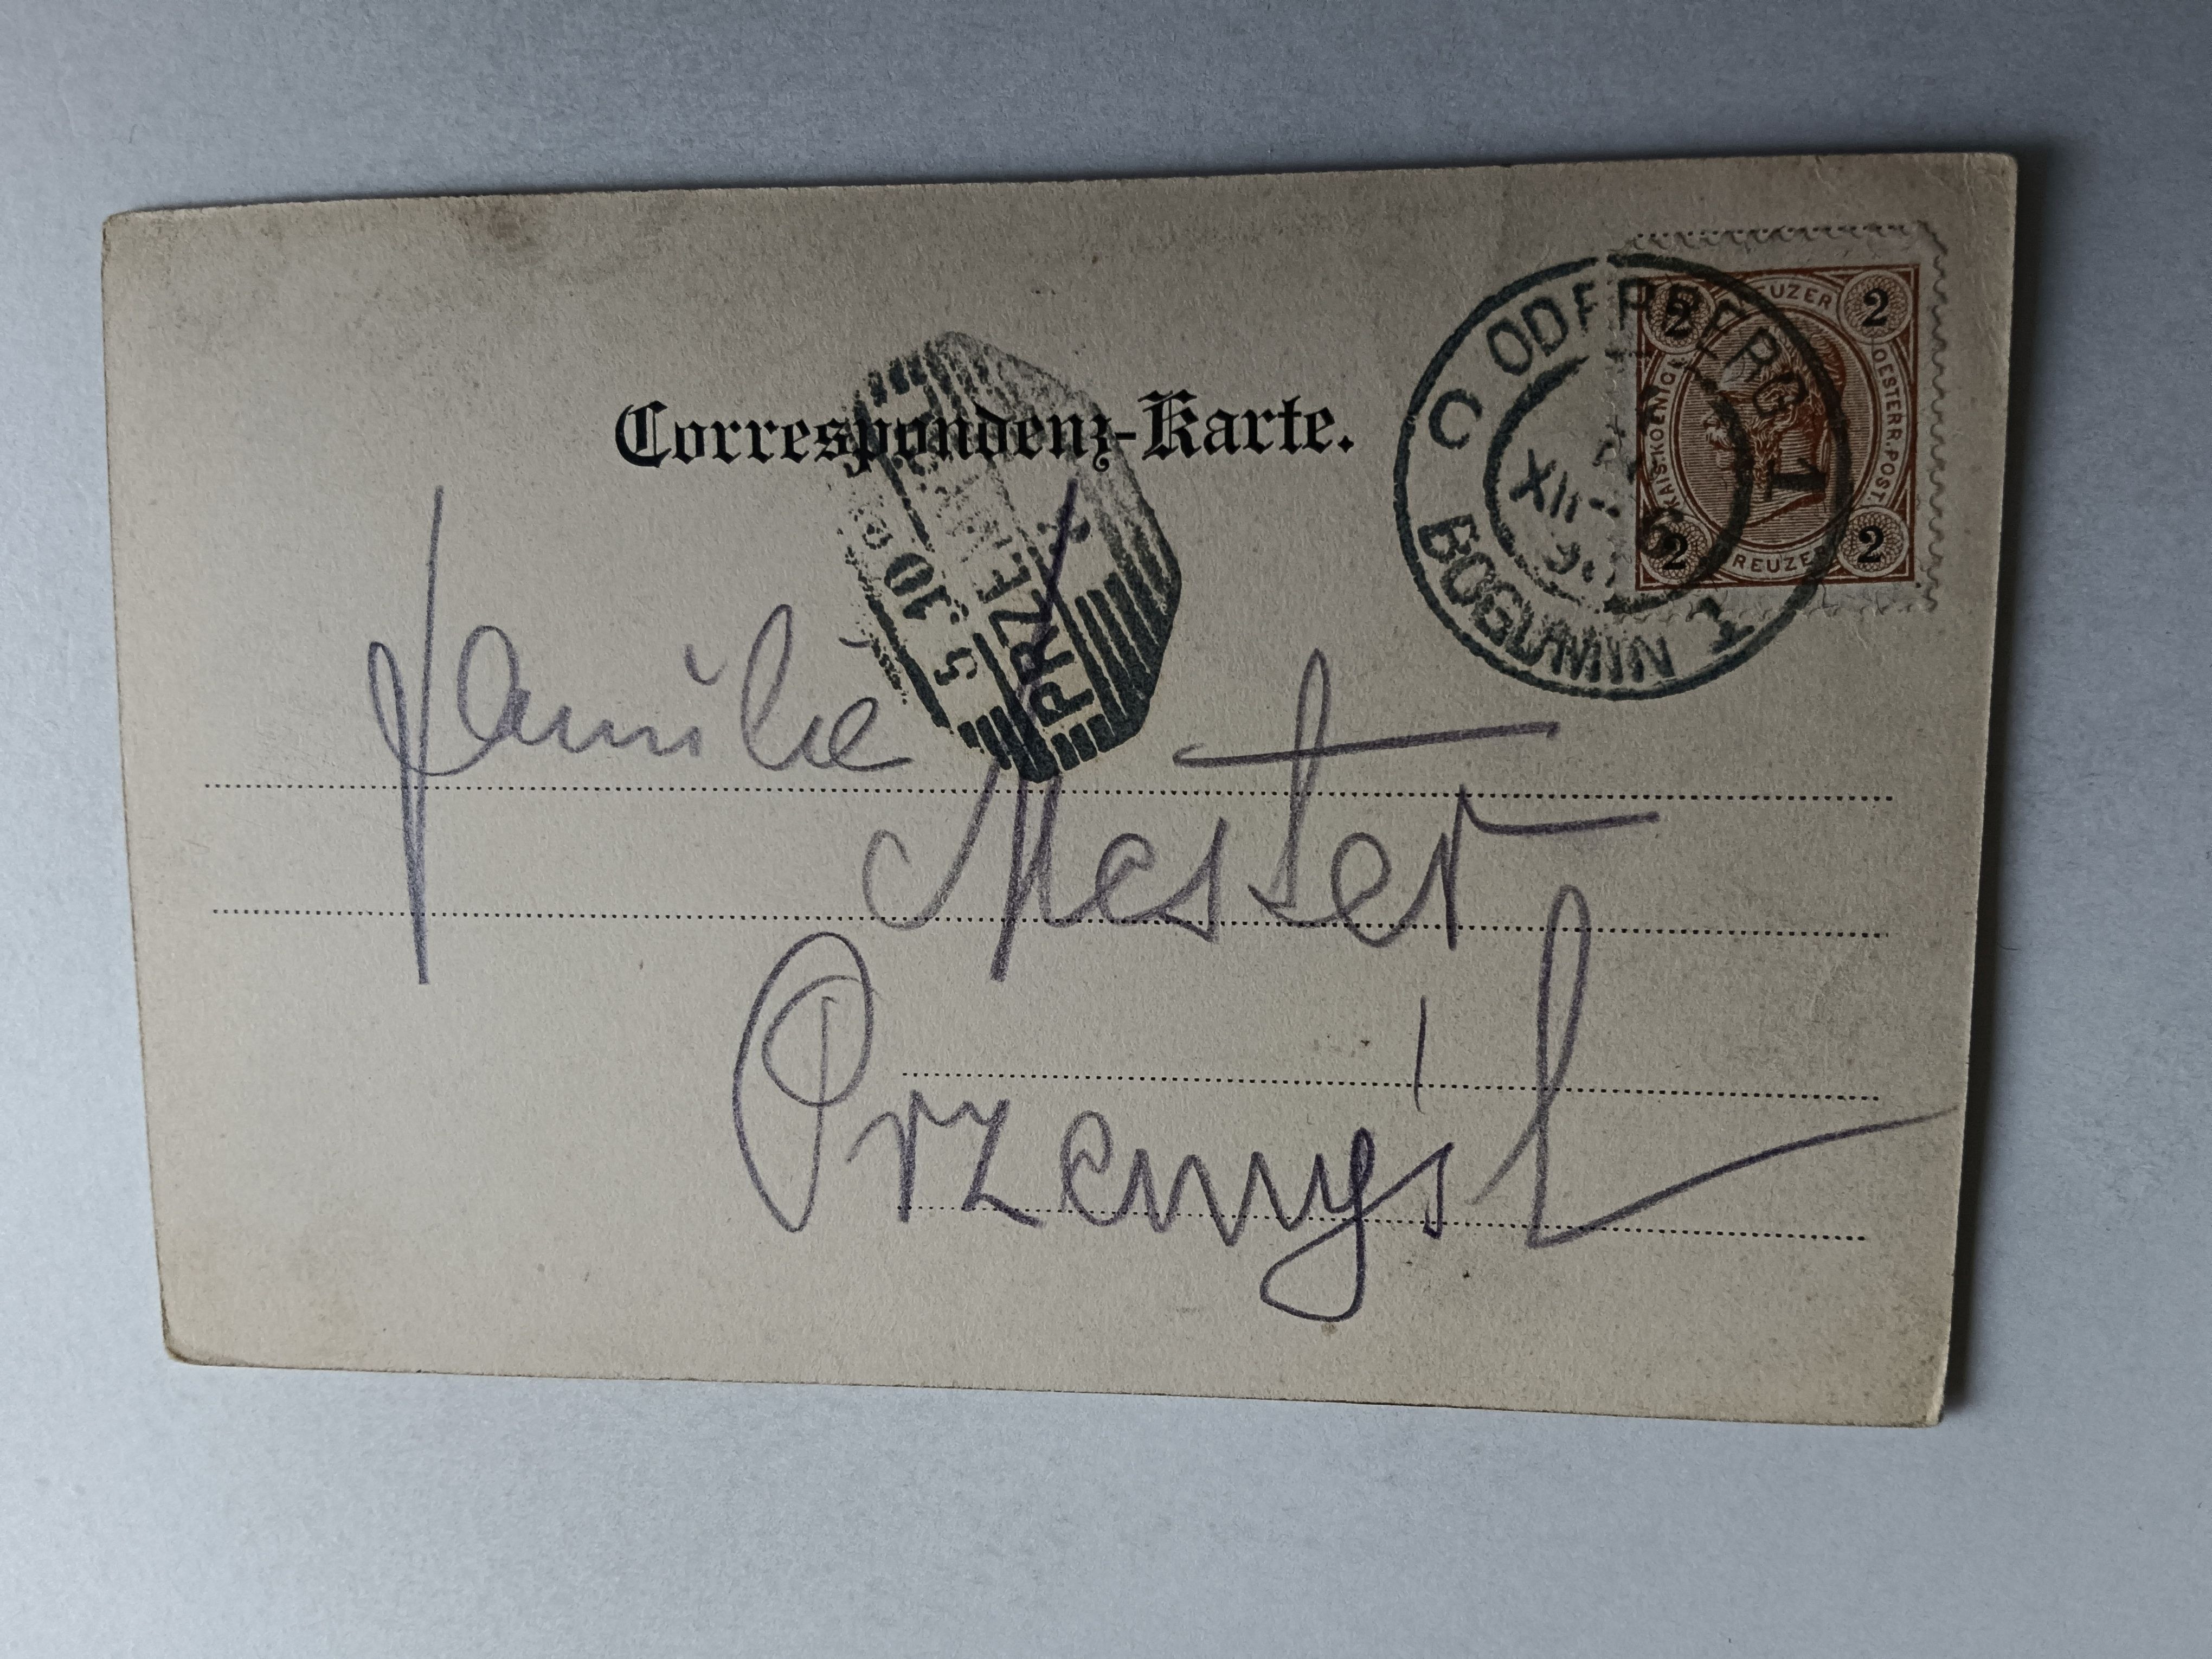 Correspondenz-Karte.
ODERBERG 1
BOGUMIN 1
2 KREUZER 2
KAIS. KOENIGL.
OESTERR. POST.
2 KREUZER 2
PRZEMY
5. 10
Familie
Mester
Przemyśl